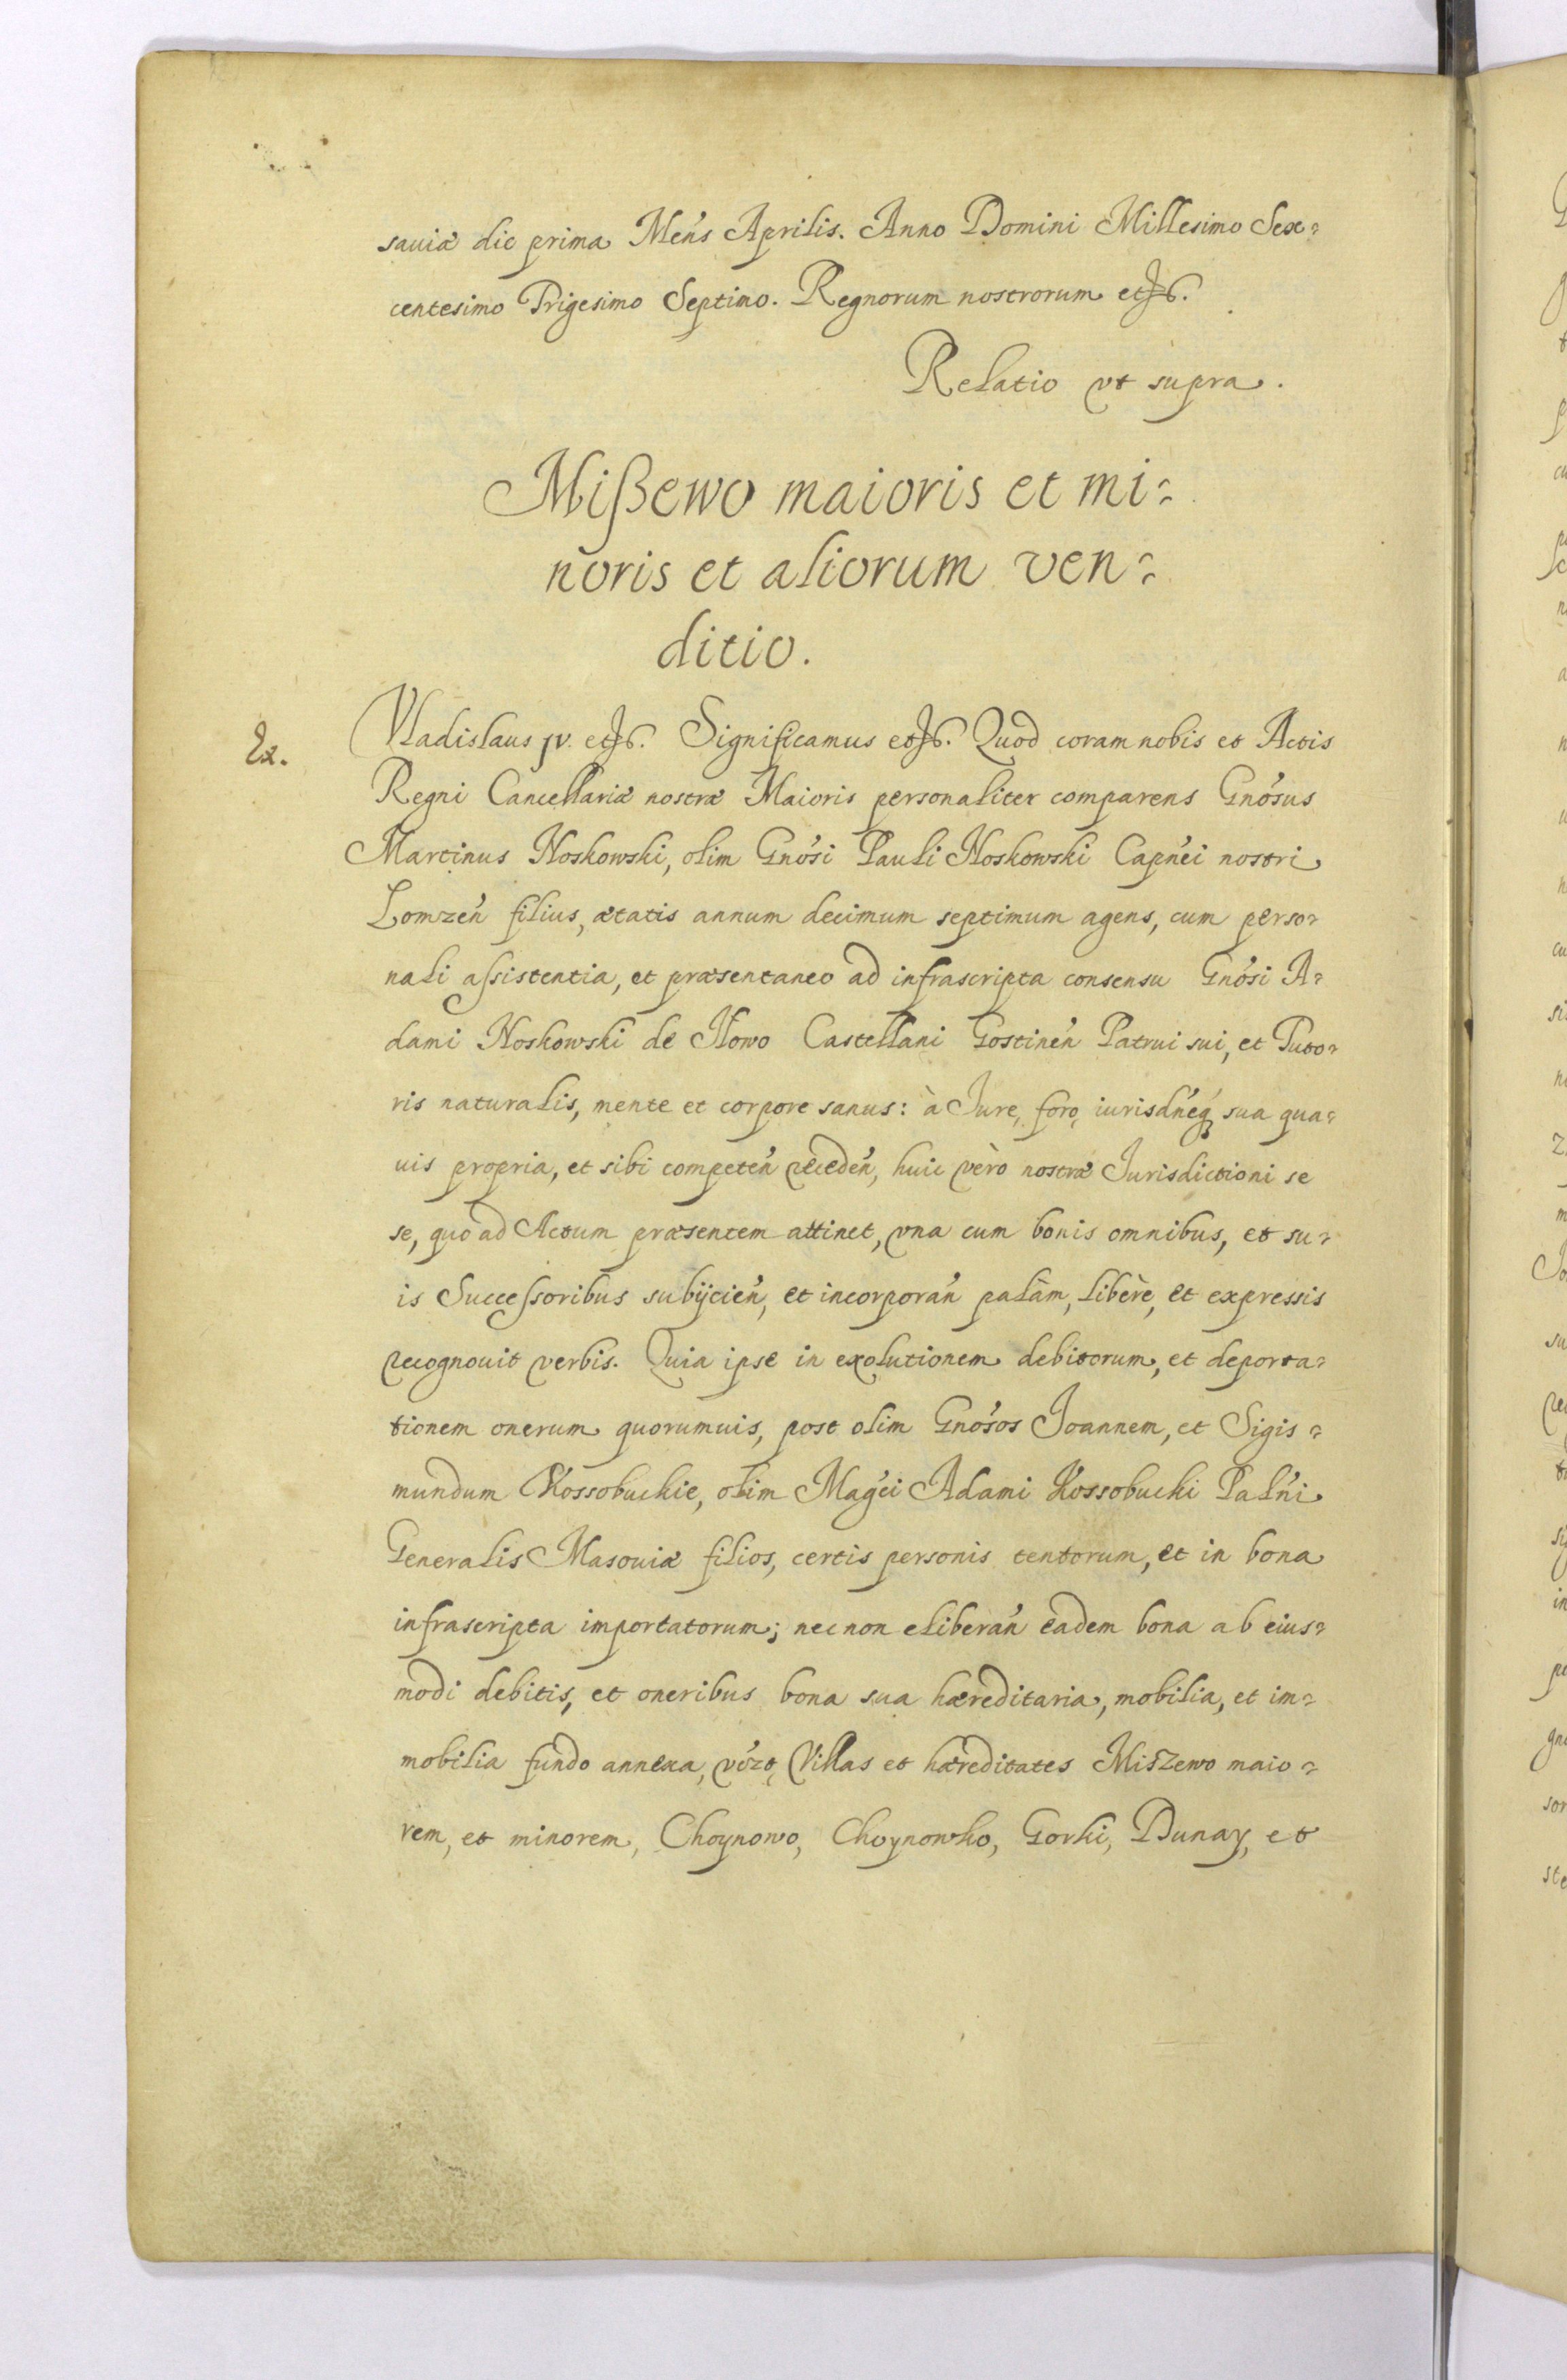 sauiæ die prima Mens Aprilis. Anno Domini Millesimo Sex=
centesimo Trigesimo Septimo. Regnorum nostrorum etc.
Relatio vt supra.
Mißewo maioris et mi=
noris et aliorum ven=
ditio.
Ex.
Vladislaus IV. etc. Significamus etc. Quod coram nobis et Actis
Regni Cancellariæ nostræ Maioris personaliter comparens Gnosus
Martinus Noskowski, olim Gnosi Pauli Noskowski Capnei nostri
Lomzen filius, ætatis annum decimum septimum agens, cum perso=
nali assistentia, et præsentaneo ad infrascripta consensu Gnosi A=
dami Noskowski de Nowo Castellani Gostinen Patrui sui, et Tuto=
ris naturalis, mente et corpore sanus: à Jure, foro, iurisdneq sua qua=
uis propria, et sibi competen receden, huic vèro nostræ Jurisdictioni se
se, quo ad Actum præsentem attinet, vna cum bonis omnibus, et su=
is Successoribus subijcien, et incorporan palàm, libère, et expressis
recognouit verbis. Quia ipse in exolutionem debitorum, et deporta=
tionem onerum quorumuis, post olim Gnosos Joannem, et Sigis=
mundum Kossobuckie, olim Magci Adami Kossobucki Palni
Generalis Masouiæ filios, certis personis tentorum, et in bona
infrascripta importatorum; necnon eliberan eadem bona ab eius=
modi debitis, et oneribus bona sua hæreditaria, mobilia, et im=
mobilia fundo annexa, vózt, Villas et hæreditates Miszewo maio=
rem, et minorem, Choynowo, Choynowko, Gorki, Dunay, et